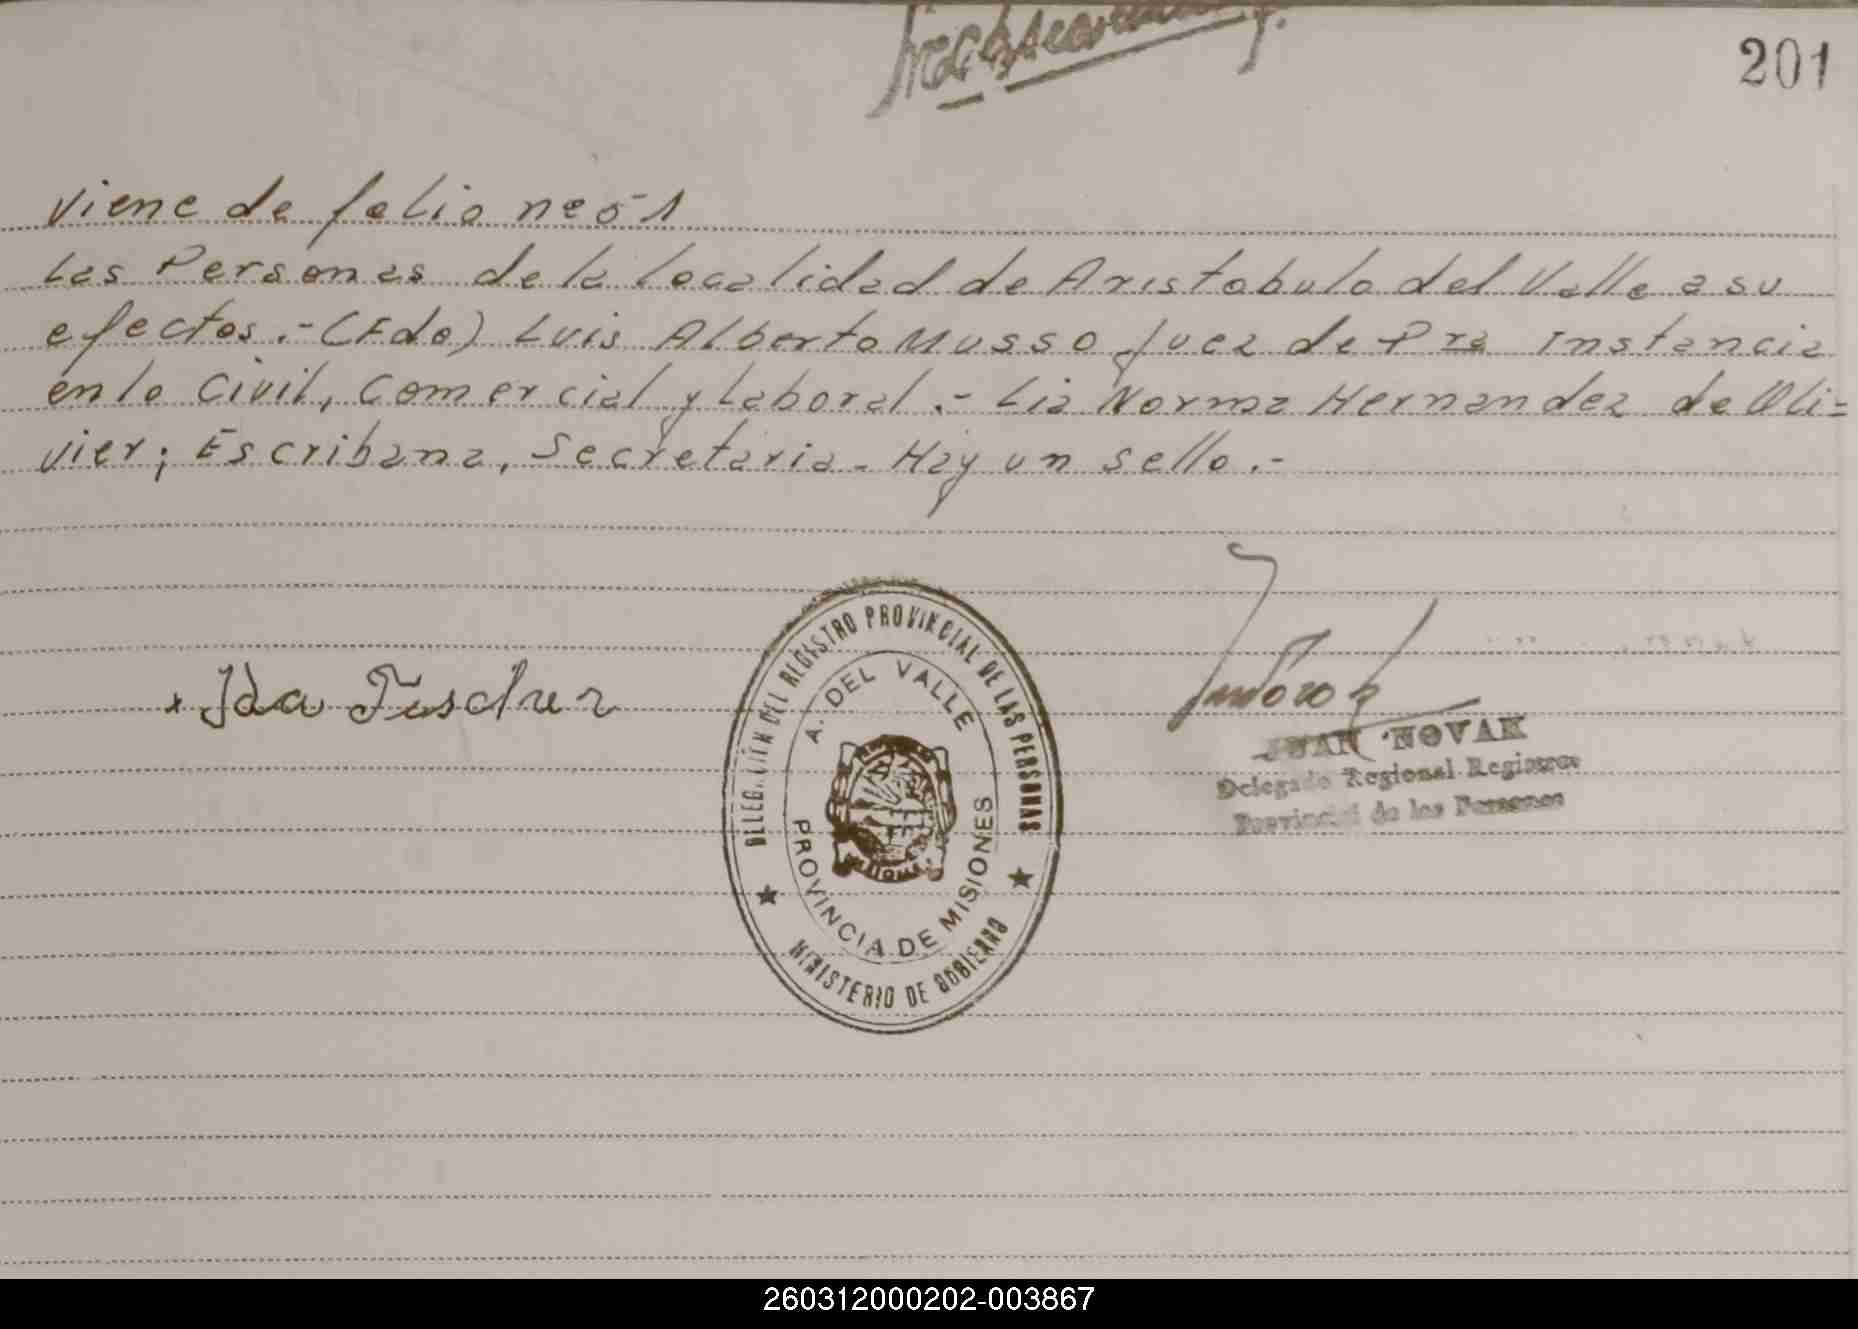 201
viene de folio nº 51
Las Personas de la localidad de Aristobulo del Valle a su
efectos.-(Fdo) Luis Alberto Musso Juez de Pra Instancia
en lo Civil, Comercial y Laboral.- Lia Norma Hernandez de Oli=
vier; Escribana, Secretaria. Hay un sello.-
x Ida Fischer
DELEGACIÓN DEL REGISTRO PROVINCIAL DE LAS PERSONAS
A. DEL VALLE
PROVINCIA DE MISIONES
MINISTERIO DE GOBIERNO
JUAN NOVAK
Delegado Regional Registro
Provincial de las Personas
260312000202-003867